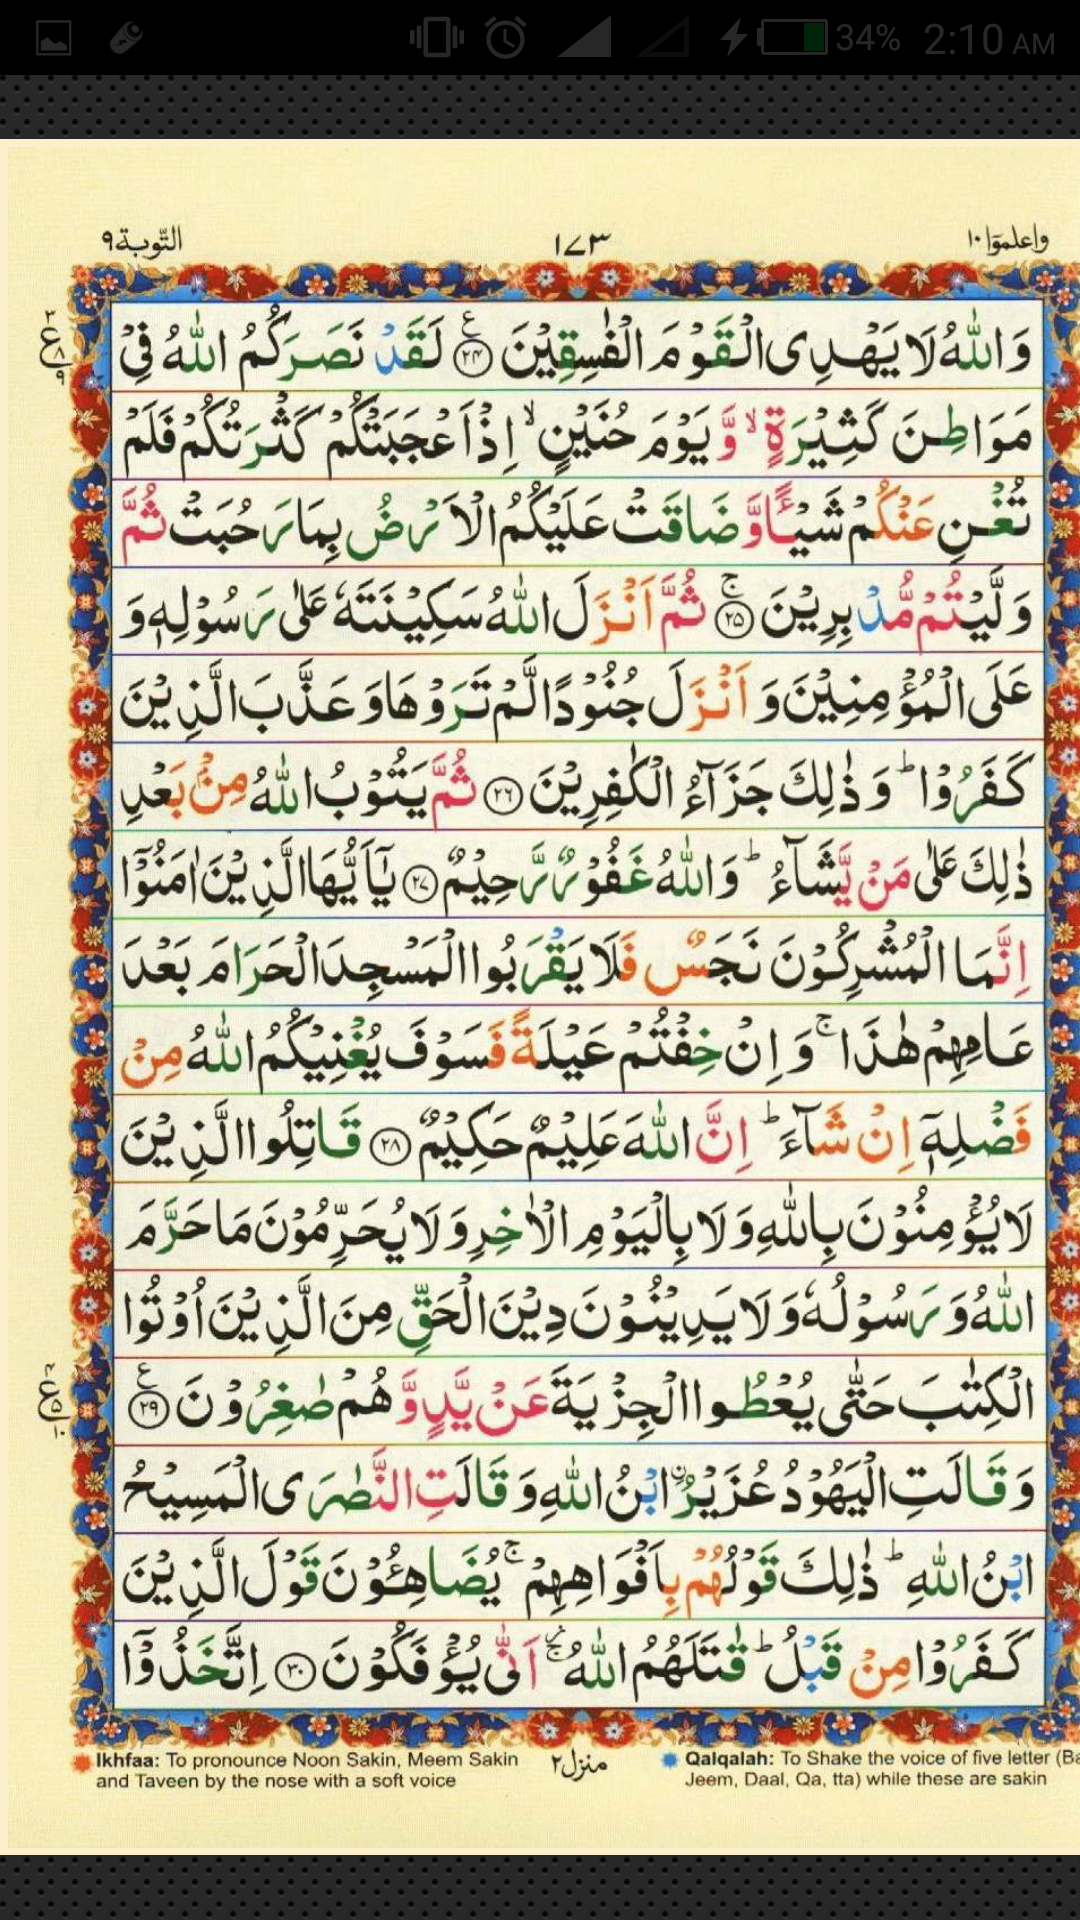 34% 2:10 AM
واعلموٓا ١٠ ١٧٣ التّوبة ٩
وَاللّٰهُ لَا يَهْدِى الْقَوْمَ الْفٰسِقِيْنَ ﴿۲۴﴾ لَقَدْ نَصَرَكُمُ اللّٰهُ فِىْ
مَوَاطِنَ كَثِيْرَةٍ ۙ وَّ يَوْمَ حُنَيْنٍ ۙ اِذْ اَعْجَبَتْكُمْ كَثْرَتُكُمْ فَلَمْ
تُغْنِ عَنْكُمْ شَيْـًٔا وَّ ضَاقَتْ عَلَيْكُمُ الْاَرْضُ بِمَا رَحُبَتْ ثُمَّ
وَلَّيْتُمْ مُّدْبِرِيْنَ ۚ ﴿۲۵﴾ ثُمَّ اَنْزَلَ اللّٰهُ سَكِيْنَتَهٗ عَلٰى رَسُوْلِهٖ وَ
عَلَى الْمُؤْمِنِيْنَ وَ اَنْزَلَ جُنُوْدًا لَّمْ تَرَوْهَا وَ عَذَّبَ الَّذِيْنَ
كَفَرُوْا ؕ وَ ذٰلِكَ جَزَآءُ الْكٰفِرِيْنَ ﴿۲۶﴾ ثُمَّ يَتُوْبُ اللّٰهُ مِنْۢ بَعْدِ
ذٰلِكَ عَلٰى مَنْ يَّشَآءُ ؕ وَاللّٰهُ غَفُوْرٌ رَّحِيْمٌ ﴿۲۷﴾ يٰۤاَيُّهَا الَّذِيْنَ اٰمَنُوْۤا
اِنَّمَا الْمُشْرِكُوْنَ نَجَسٌ فَلَا يَقْرَبُوا الْمَسْجِدَ الْحَرَامَ بَعْدَ
عَامِهِمْ هٰذَا ۚ وَ اِنْ خِفْتُمْ عَيْلَةً فَسَوْفَ يُغْنِيْكُمُ اللّٰهُ مِنْ
فَضْلِهٖۤ اِنْ شَآءَ ؕ اِنَّ اللّٰهَ عَلِيْمٌ حَكِيْمٌ ﴿۲۸﴾ قَاتِلُوا الَّذِيْنَ
لَا يُؤْمِنُوْنَ بِاللّٰهِ وَ لَا بِالْيَوْمِ الْاٰخِرِ وَ لَا يُحَرِّمُوْنَ مَا حَرَّمَ
اللّٰهُ وَ رَسُوْلُهٗ وَ لَا يَدِيْنُوْنَ دِيْنَ الْحَقِّ مِنَ الَّذِيْنَ اُوْتُوا
الْكِتٰبَ حَتّٰى يُعْطُوا الْجِزْيَةَ عَنْ يَّدٍ وَّ هُمْ صٰغِرُوْنَ ﴿۲۹﴾
وَ قَالَتِ الْيَهُوْدُ عُزَيْرُ ۨابْنُ اللّٰهِ وَ قَالَتِ النَّصٰرَى الْمَسِيْحُ
ابْنُ اللّٰهِ ؕ ذٰلِكَ قَوْلُهُمْ بِاَفْوَاهِهِمْ ۚ يُضَاهِـُٔوْنَ قَوْلَ الَّذِيْنَ
كَفَرُوْا مِنْ قَبْلُ ؕ قٰتَلَهُمُ اللّٰهُ ۚ اَنّٰى يُؤْفَكُوْنَ ﴿۳۰﴾ اِتَّخَذُوْۤا
Ikhfaa: To pronounce Noon Sakin, Meem Sakin
and Taveen by the nose with a soft voice
منزل ٢
Qalqalah: To Shake the voice of five letter (Ba
Jeem, Daal, Qa, tta) while these are sakin